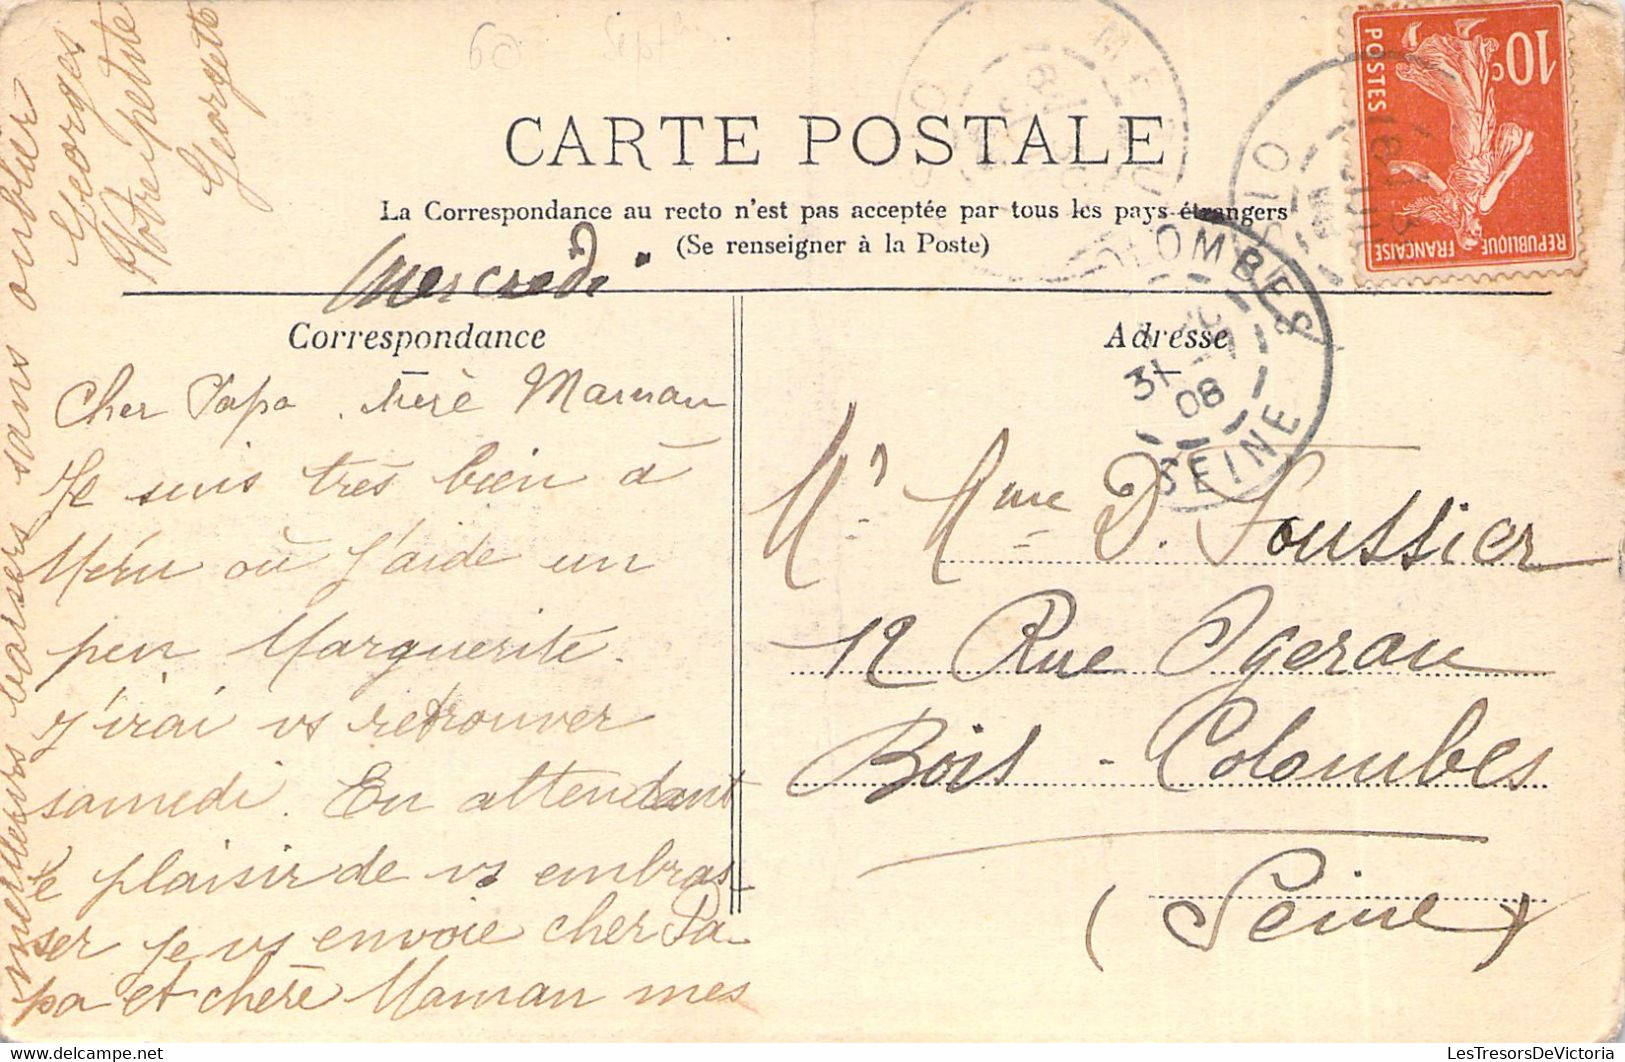 CARTE POSTALE
La Correspondance au recto n'est pas acceptée par tous les pays étrangers
(Se renseigner à la Poste)
Mercredi
Correspondance
Cher Papa. chère Maman
Je suis très bien à
Méru où j'aide un
peu Marguerite.
J'irai vs retrouver
samedi. En attendant
le plaisir de vs embras
ser je vs envoie cher Pa
pa et chère Maman mes
meilleurs baisers sans oublier
Georges
Votre petite
Georgette
Adresse
Mr Mme D. Foussier
12 Rue
Bois-Colombes
(Seine)
10c
POSTES
REPUBLIQUE FRANÇAISE
COLOMBES
31 - 7
08
SEINE
LesTresorsDeVictoria